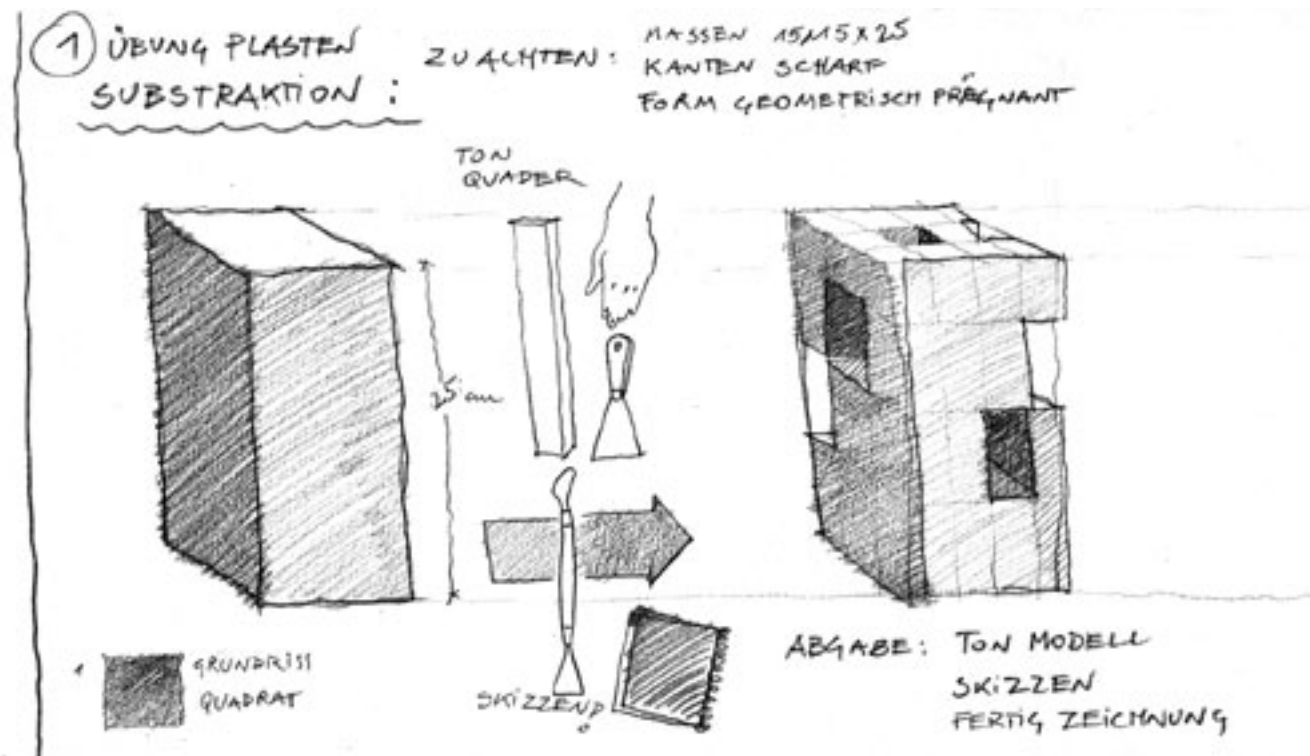 1 ÜBUNG PLASTEN
SUBSTRAKTION :
ZU ACHTEN : MASSEN 15x15x25
KANTEN SCHARF
FORM GEOMETRISCH PRÄGNANT
TON
QUADER
25 cm
GRUNDRISS
QUADRAT
SKIZZEN
ABGABE : TON MODELL
SKIZZEN
FERTIG ZEICHNUNG